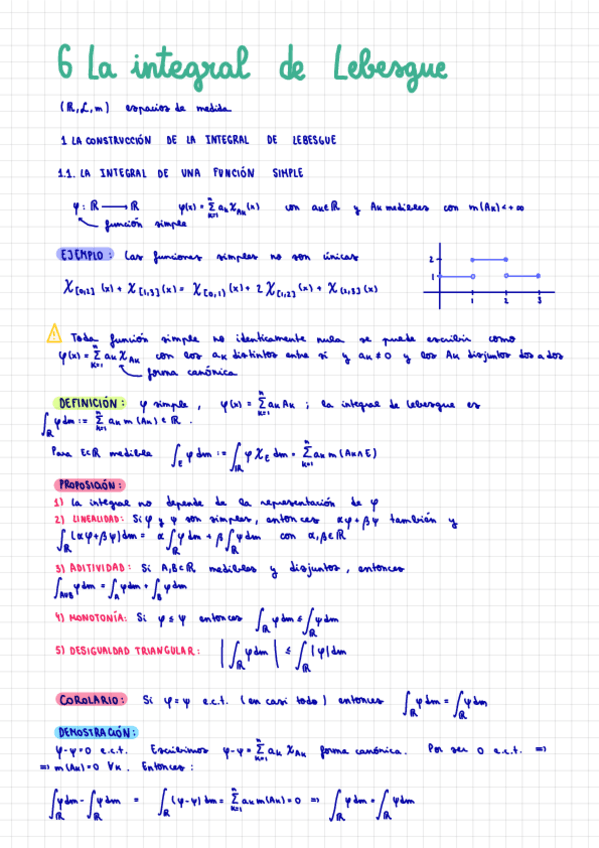 6 La integral de Lebesgue
(ℝ, ℒ, m) espacios de medida
1 LA CONSTRUCCIÓN DE LA INTEGRAL DE LEBESGUE
1.1. LA INTEGRAL DE UNA FUNCIÓN SIMPLE
φ: ℝ ⟶ ℝ φ(x) = Σₖ₌₁ⁿ aₖ χ_Aₖ(x) con aₖ∈ℝ y Aₖ medibles con m(Aₖ) < +∞
función simple
EJEMPLO: Las funciones simples no son únicas
χ[0,2](x) + χ[1,3](x) = χ[0,1)(x) + 2χ[1,2](x) + χ(2,3](x)
2
1
1 2 3
Toda función simple no identicamente nula se puede escribir como
φ(x) = Σₖ₌₁ⁿ aₖ χ_Aₖ con los aₖ distintos entre sí y aₖ ≠ 0 y los Aₖ disjuntos dos a dos
forma canónica
DEFINICIÓN: φ simple, φ(x) = Σₖ₌₁ⁿ aₖ Aₖ ; la integral de Lebesgue es
∫_ℝ φdm := Σₖ₌₁ⁿ aₖ m(Aₖ) ∈ ℝ.
Para E⊂ℝ medible ∫_E φdm := ∫_ℝ φ χ_E dm = Σₖ₌₁ⁿ aₖ m(Aₖ∩E)
PROPOSICIÓN:
1) La integral no depende de la representación de φ
2) LINEALIDAD: Si φ y ψ son simples, entonces αφ+βψ también y
∫_ℝ (αφ+βψ)dm = α∫_ℝ φdm + β∫_ℝ ψdm con α,β∈ℝ
3) ADITIVIDAD: Si A,B⊂ℝ medibles y disjuntos, entonces
∫_A∪B φdm = ∫_A φdm + ∫_B φdm
4) MONOTONÍA: Si φ≤ψ entonces ∫_ℝ φdm ≤ ∫_ℝ ψdm
5) DESIGUALDAD TRIANGULAR: |∫_ℝ φdm| ≤ ∫_ℝ |φ|dm
COROLARIO: Si φ=ψ e.c.t. (en casi todo) entonces ∫_ℝ φdm = ∫_ℝ ψdm
DEMOSTRACIÓN:
φ-ψ=0 e.c.t. Escribimos φ-ψ = Σₖ₌₁ⁿ aₖ χ_Aₖ forma canónica. Por ser 0 e.c.t. ⇒
⇒ m(Aₖ)=0 ∀k. Entonces:
∫_ℝ φdm - ∫_ℝ ψdm = ∫_ℝ (φ-ψ)dm = Σₖ₌₁ⁿ aₖ m(Aₖ) = 0 ⇒ ∫_ℝ φdm = ∫_ℝ ψdm